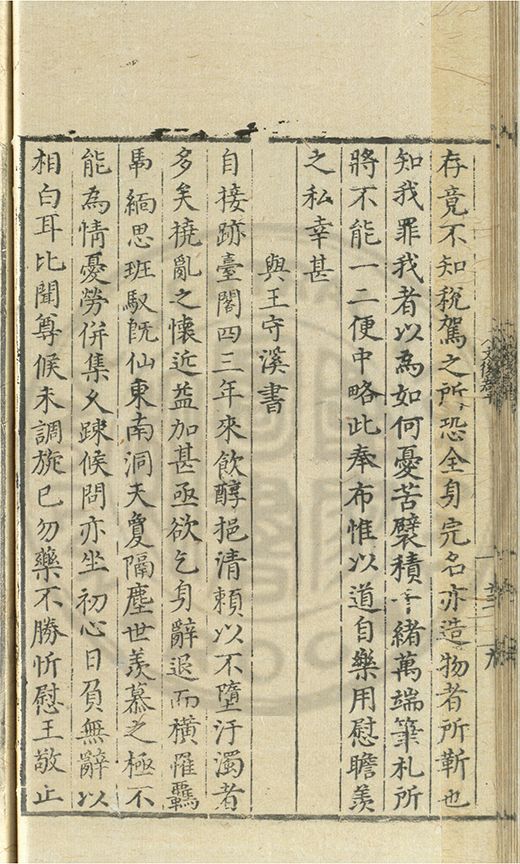 存竟不知稅駕之所恐全身完名亦造物者所靳也
知我罪我者以為如何憂苦襞積千緒萬端筆札所
將不能一二便中略此奉布惟以道自樂用慰瞻羨
之私幸甚
與王守溪書
自接跡臺閣四三年來飲醇挹清賴以不墮汙濁者
多矣撓亂之懷近益加甚亟欲乞身辭退而橫罹羈
馽緬思班馭旣仙東南洞天敻隔塵世羨慕之極不
能為情憂勞併集久踈候問亦坐初心日負無辭以
相白耳比聞尊候未調旋已勿藥不勝忻慰王敬止